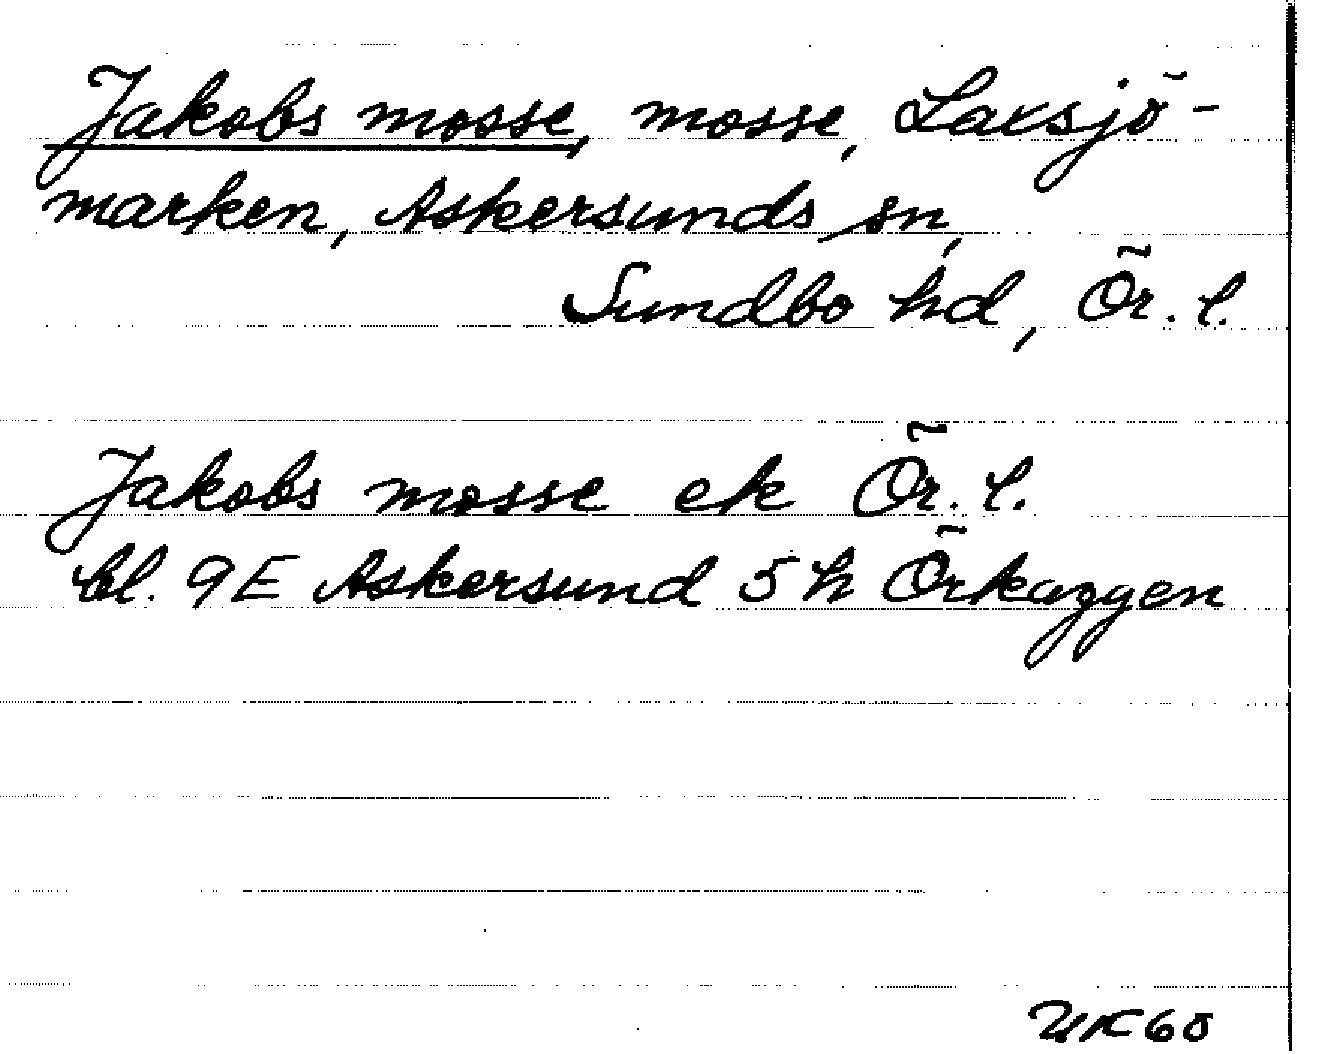 Jakobs mosse, mosse, Laxsjö-
marken, Askersunds sn,
Sundbo hd, Ör. l.
Jakobs mosse ek Ör. l.
bl. 9E Askersund 5 h Örkaggen